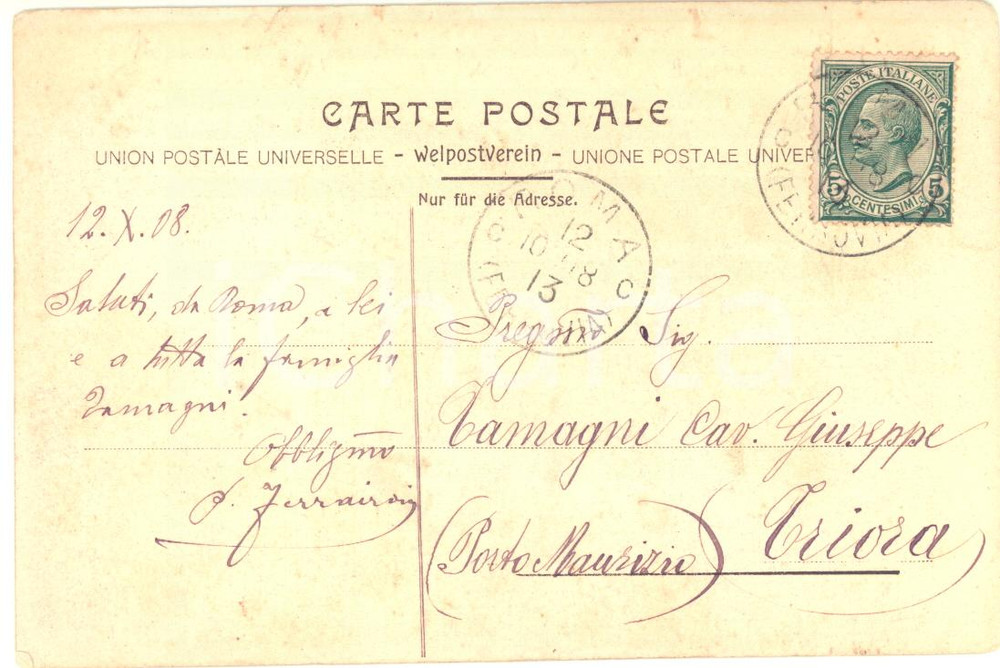 CARTE POSTALE
UNION POSTALE UNIVERSELLE - Welpostverein - UNIONE POSTALE UNIVER
Nur für die Adresse.
POSTE ITALIANE
5 CENTESIMI 5
ROMA
12
10 08
13
C C
12.X.08.
Saluti, da Roma, a lei
e a tutta la famiglia
Tamagni.
Obbligmo
Pregmo Sig.
Tamagni Cav. Giuseppe
(Porto Maurizio) Triora